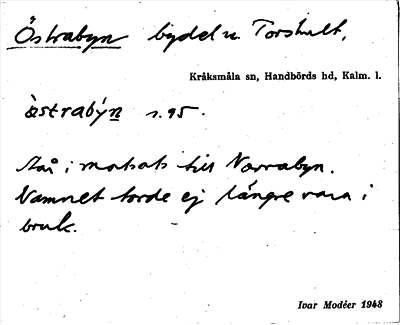 Östrabyn bydel u Torshult,
Kråksmåla sn, Handbörds hd, Kalm. l.
östrabýn s. 95.
Står i motsats till Norrabyn.
Namnet torde ej längre vara i
bruk.
Ivar Modéer 1948